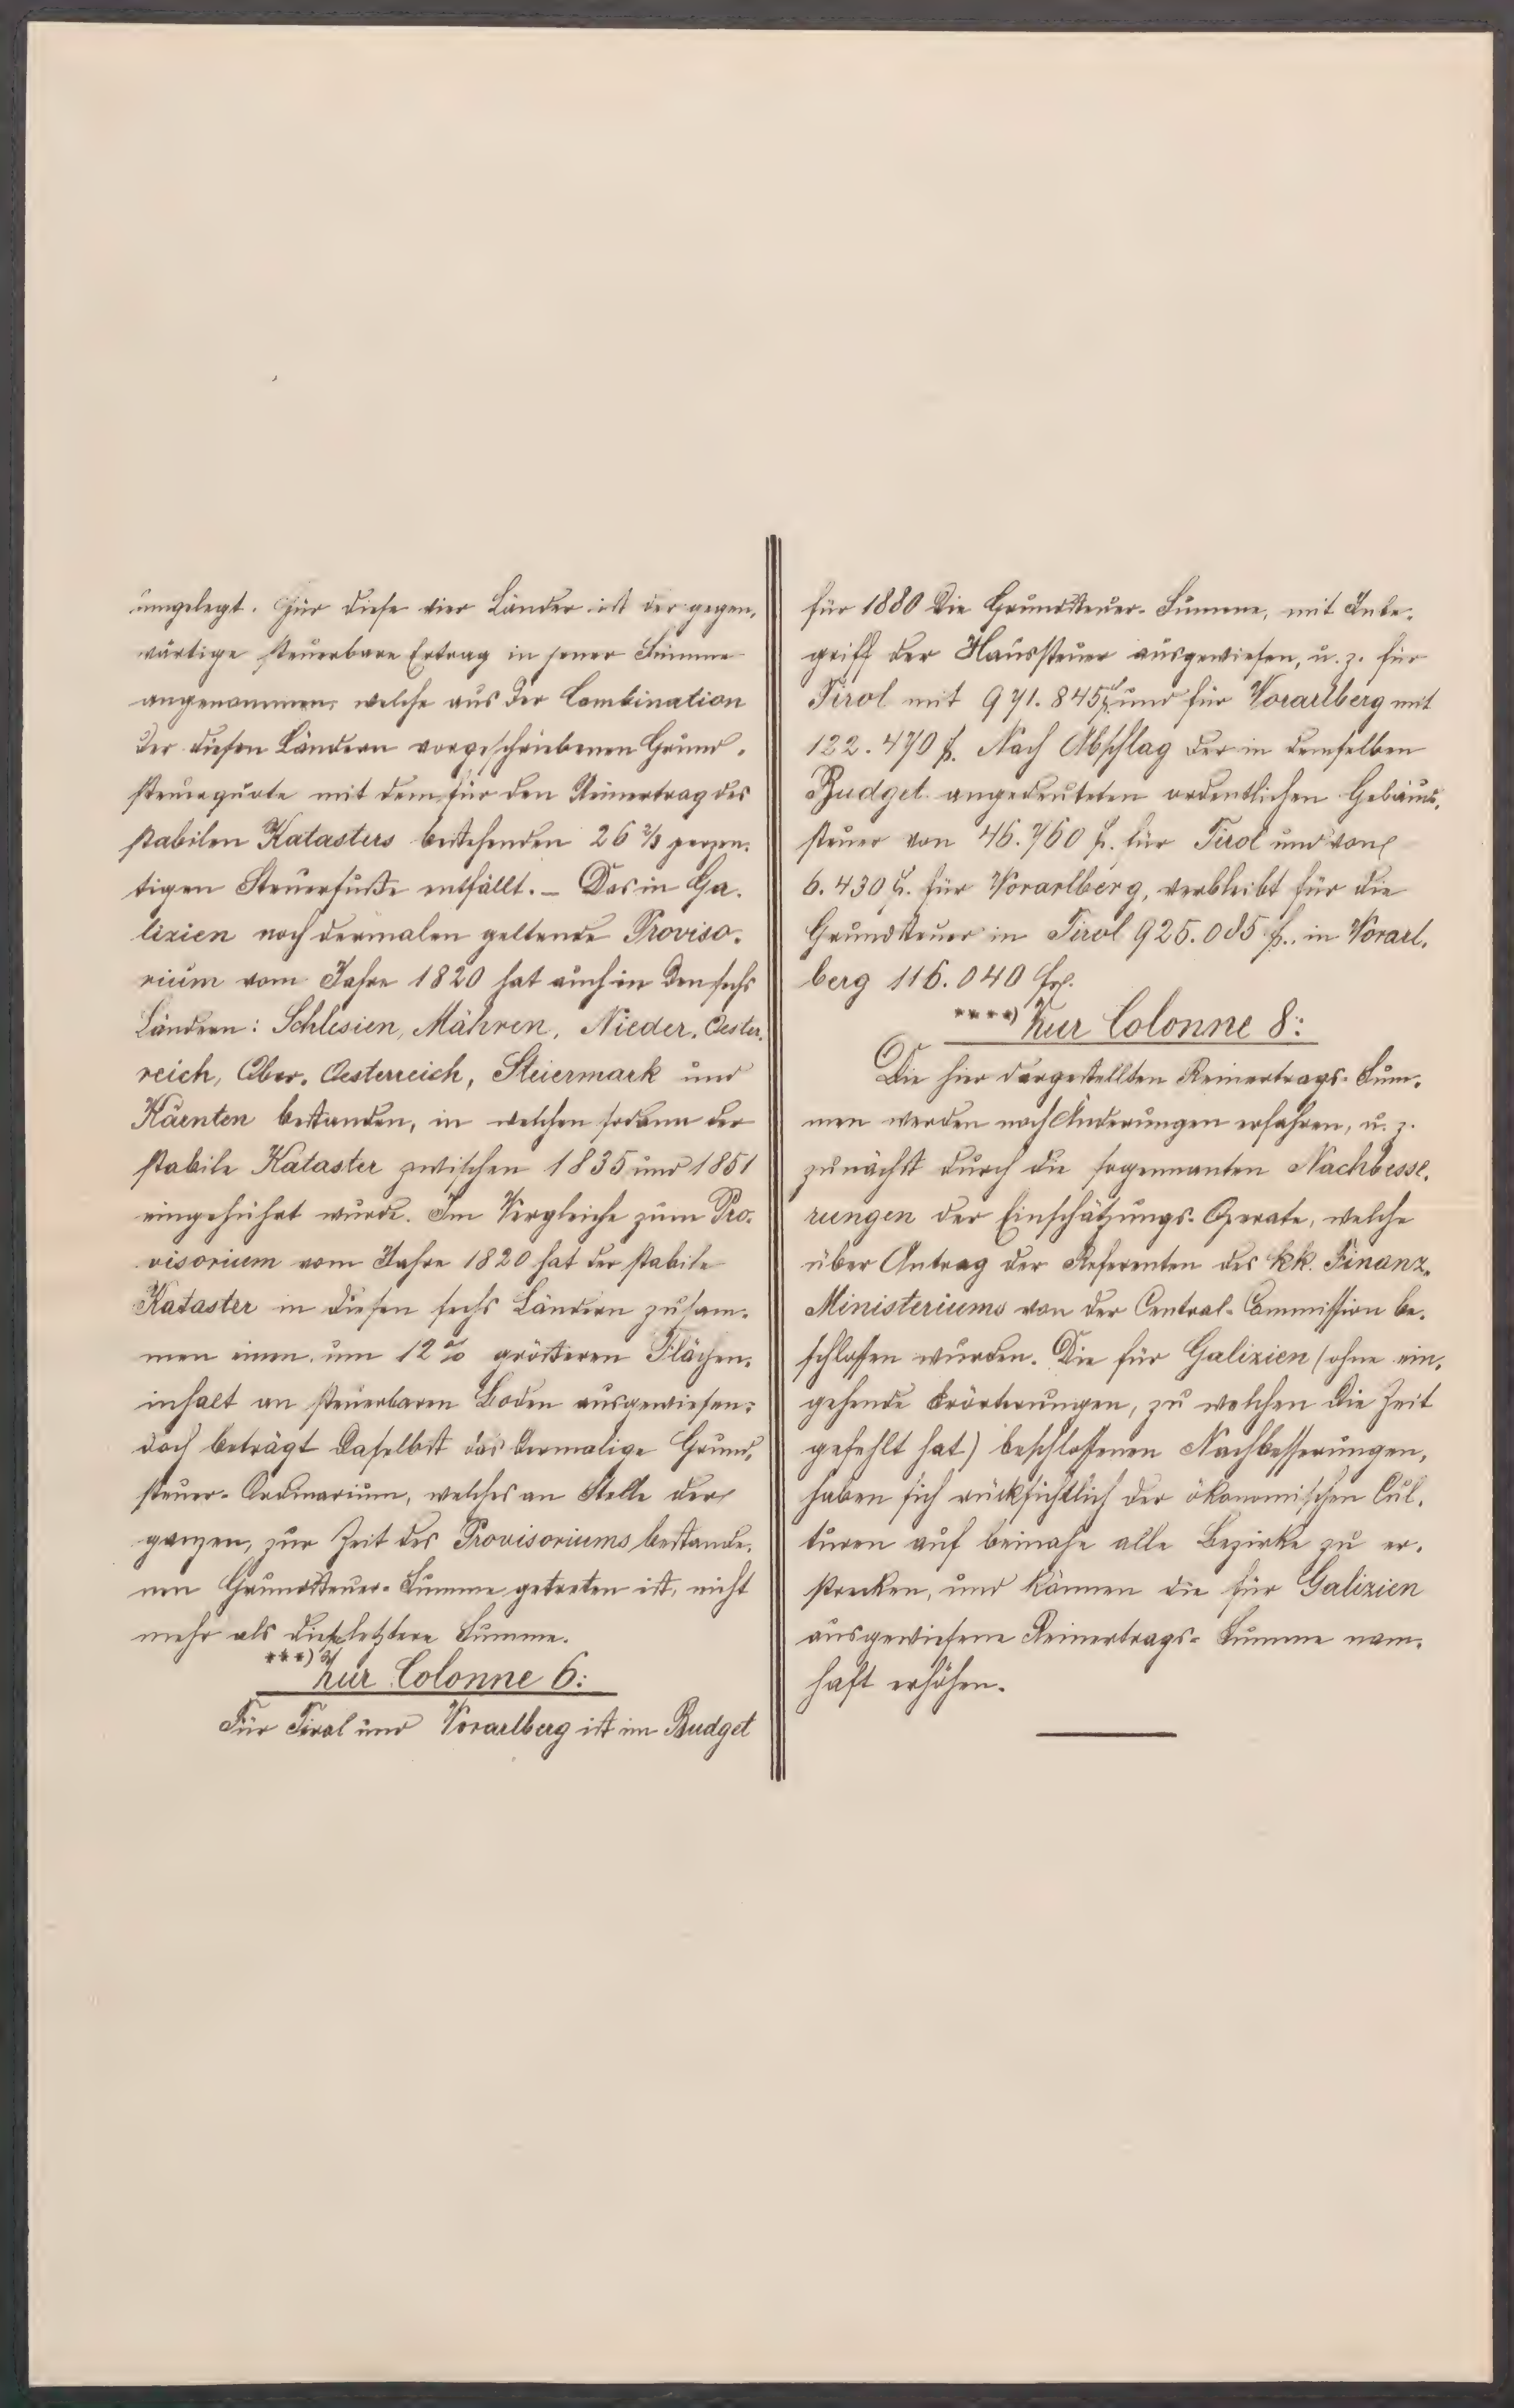 umgelegt. Für diese vier Länder ist der gegen-
wärtige steuerbare Ertrag in jener Summe
angenommen, welche aus der Combination
der diesen Ländern vorgeschriebenen Grund-
steuerquote mit dem für den Reinertrag des
stabilen Katasters bestehenden 26 2/3 perzen-
tigen Steuerfuße entfällt. – Das in Ga-
lizien noch dermalen geltende Proviso-
rium vom Jahre 1820 hat auch in den sechs
Ländern: Schlesien, Mähren, Nieder-Oester-
reich, Ober-Oesterreich, Steiermark und
Kärnten bestanden, in welchen sodann der
stabile Kataster zwischen 1835 und 1851
eingeführt wurde. Im Vergleiche zum Pro-
visorium vom Jahre 1820 hat der stabile
Kataster in diesen sechs Ländern zusam-
men einen um 12% größeren Flächen-
inhalt an steuerbarem Boden ausgewiesen;
doch beträgt daselbst das dermalige Grund-
steuer-Ordinarium, welches an Stelle der
ganzen, zur Zeit des Provisoriums bestande-
nen Grundsteuer-Summe getreten ist, nicht
mehr als diese letztere Summe.
***) Zur Colonne 6:
Für Tirol und Vorarlberg ist im Budget
für 1880 die Grundsteuer-Summe, mit Inbe-
griff der Haussteuer ausgewiesen, u. z. für
Tirol mit 971.845 fl. und für Vorarlberg mit
122.470 fl. Nach Abschlag der in demselben
Budget angedeuteten ordentlichen Gebäude-
steuer von 46.760 fl. für Tirol und von
6.430 fl. für Vorarlberg, verbleibt für die
Grundsteuer in Tirol 925.085 fl., in Vorarl-
berg 116.040 fl.
****) Zur Colonne 8:
Die hier dargestellten Reinertrags-Sum-
men werden noch Änderungen erfahren, u. z.
zunächst durch die sogenannten Nachbesse-
rungen der Einschätzungs-Operate, welche
über Antrag der Referenten des kk. Finanz-
Ministeriums von der Central-Commission be-
schlossen wurden. Die für Galizien (ohne ein-
gehende Erörterungen, zu welchen die Zeit
gefehlt hat) beschlossenen Nachbesserungen,
haben sich rücksichtlich der ökonomischen Cul-
turen auf beinahe alle Bezirke zu er-
strecken, und können die für Galizien
ausgewiesene Reinertrags-Summe nam-
haft erhöhen.